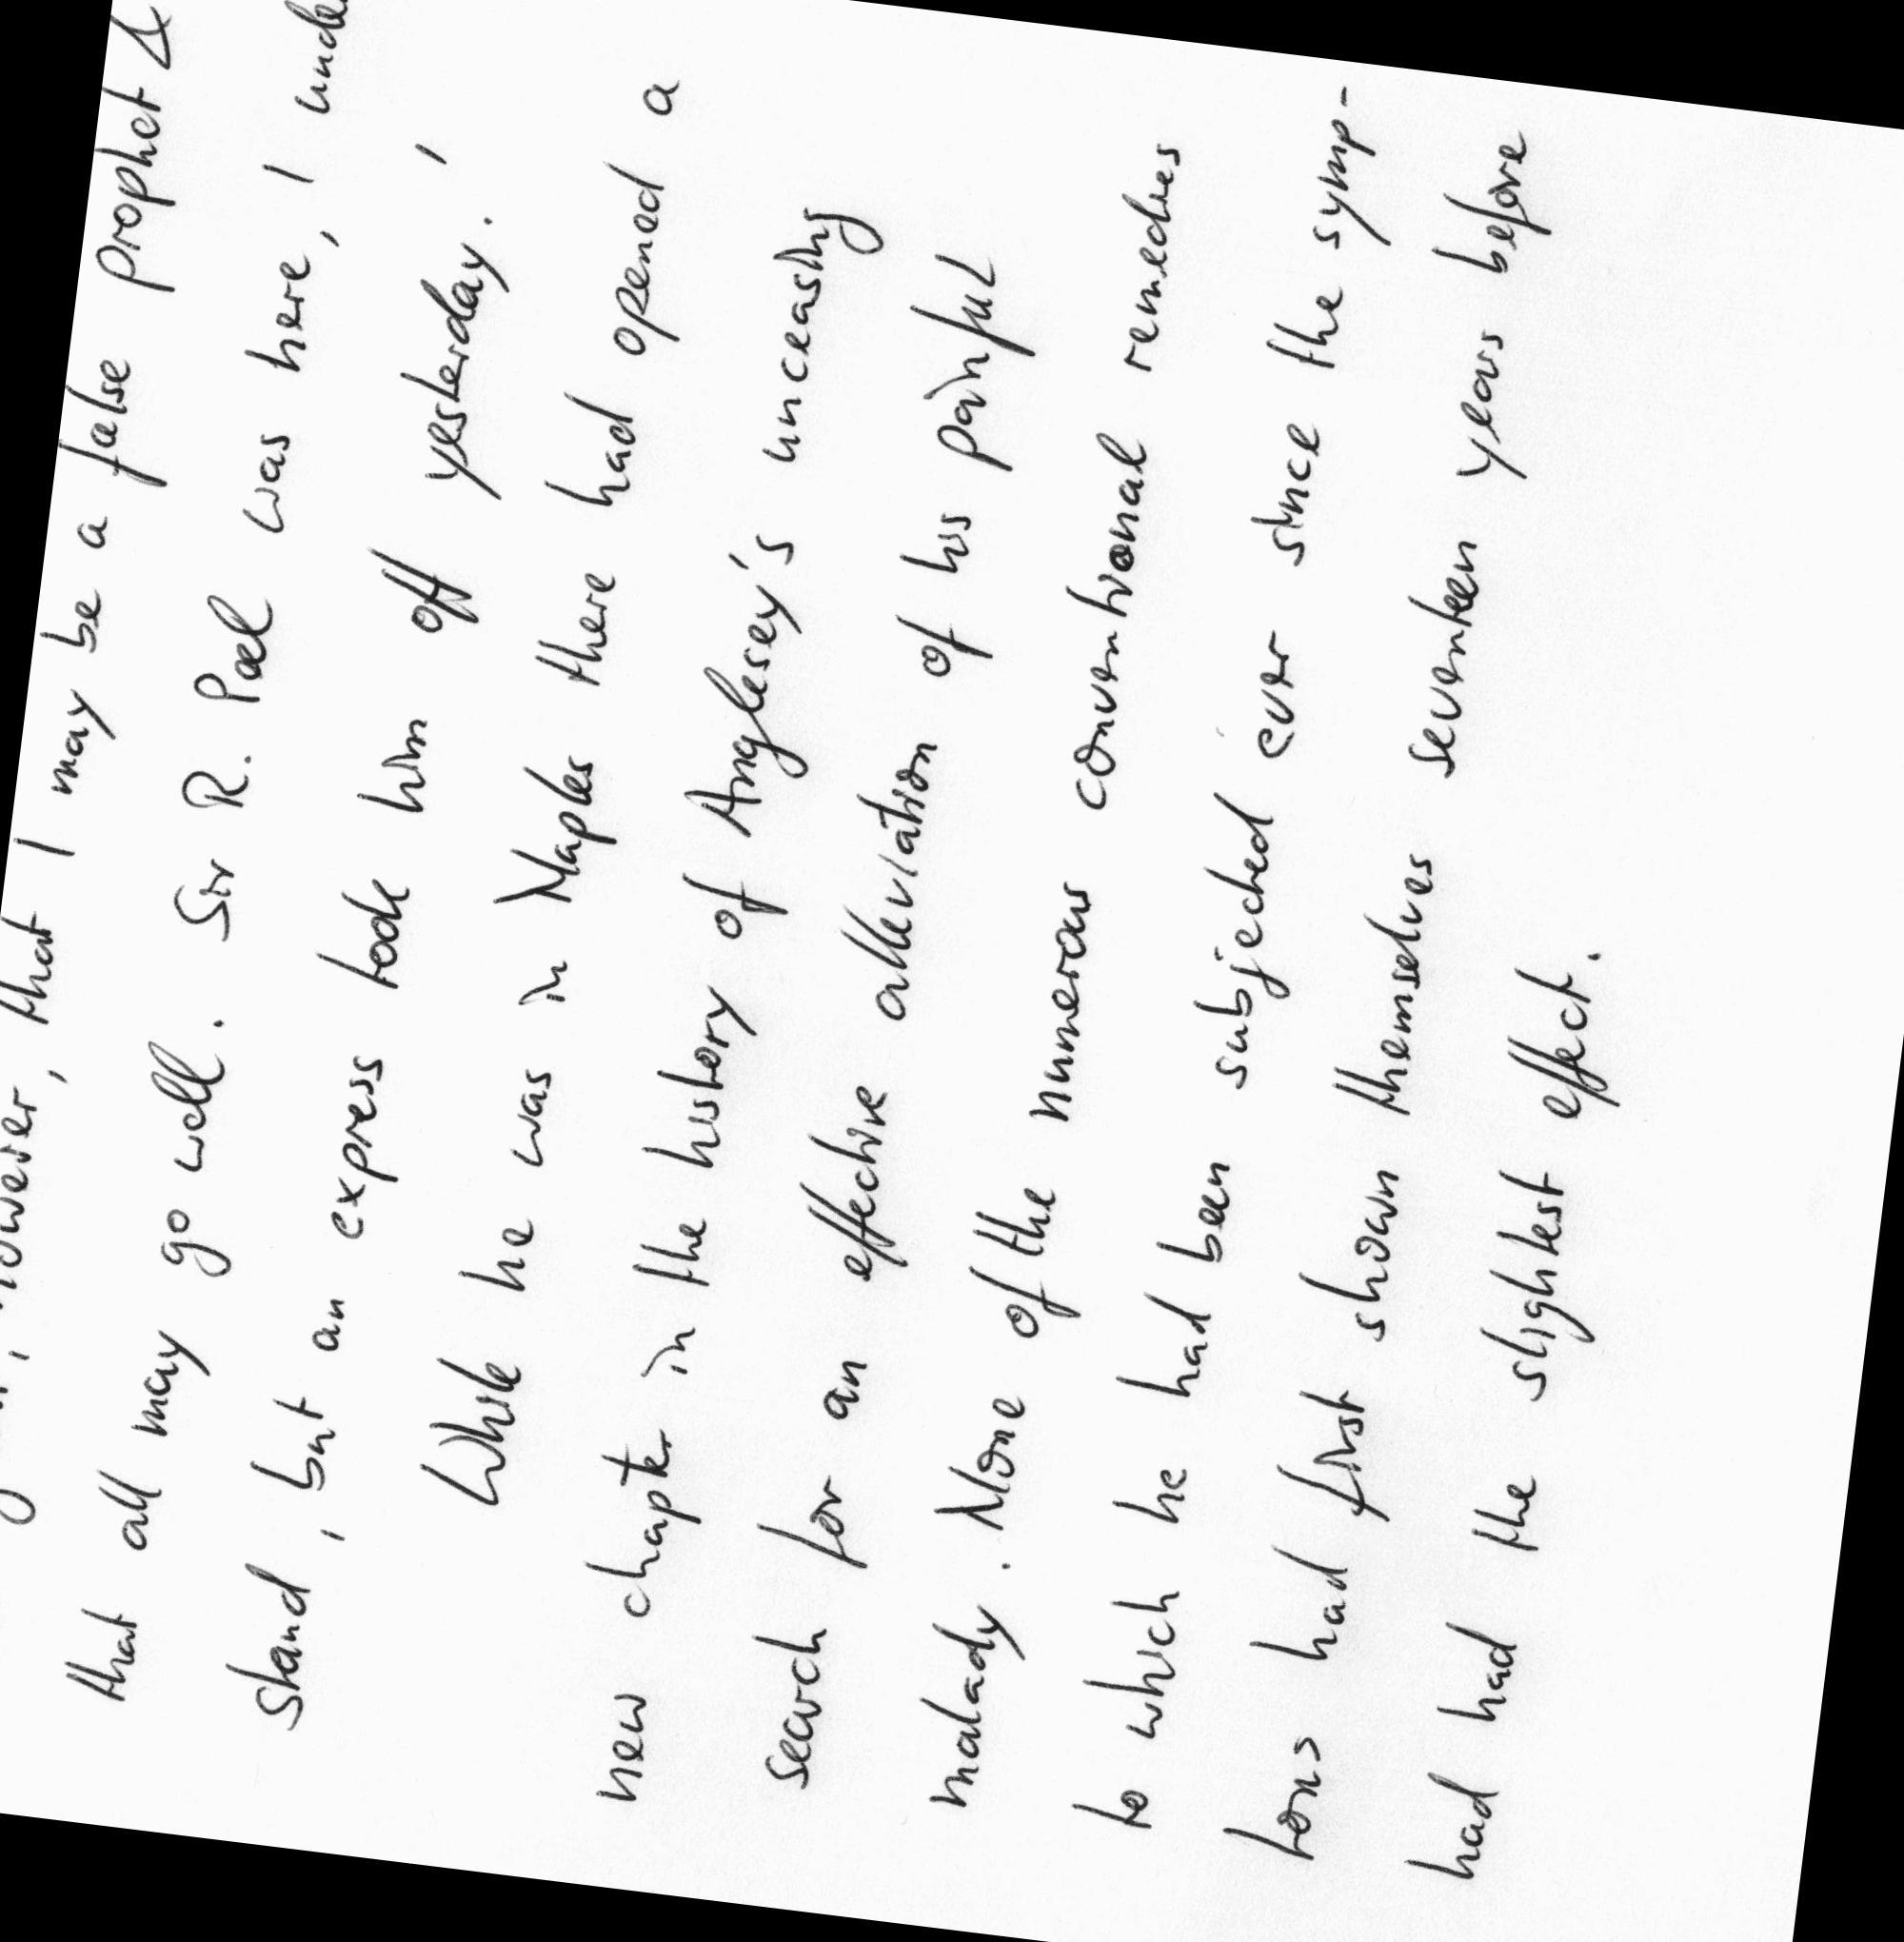 however, that I may be a false prophet &
that all may go well. Sir R. Peel was here, I under
stand, but an express took him off yesterday. '
While he was in Naples there had opened a
new chapter in the history of Anglesey's unceasing
search for an effective alleviation of his painful
malady. None of the numerous conventional remedies
to which he had been subjected ever since the symp-
toms had first shown themselves seventeen years before
had had the slightest effect.